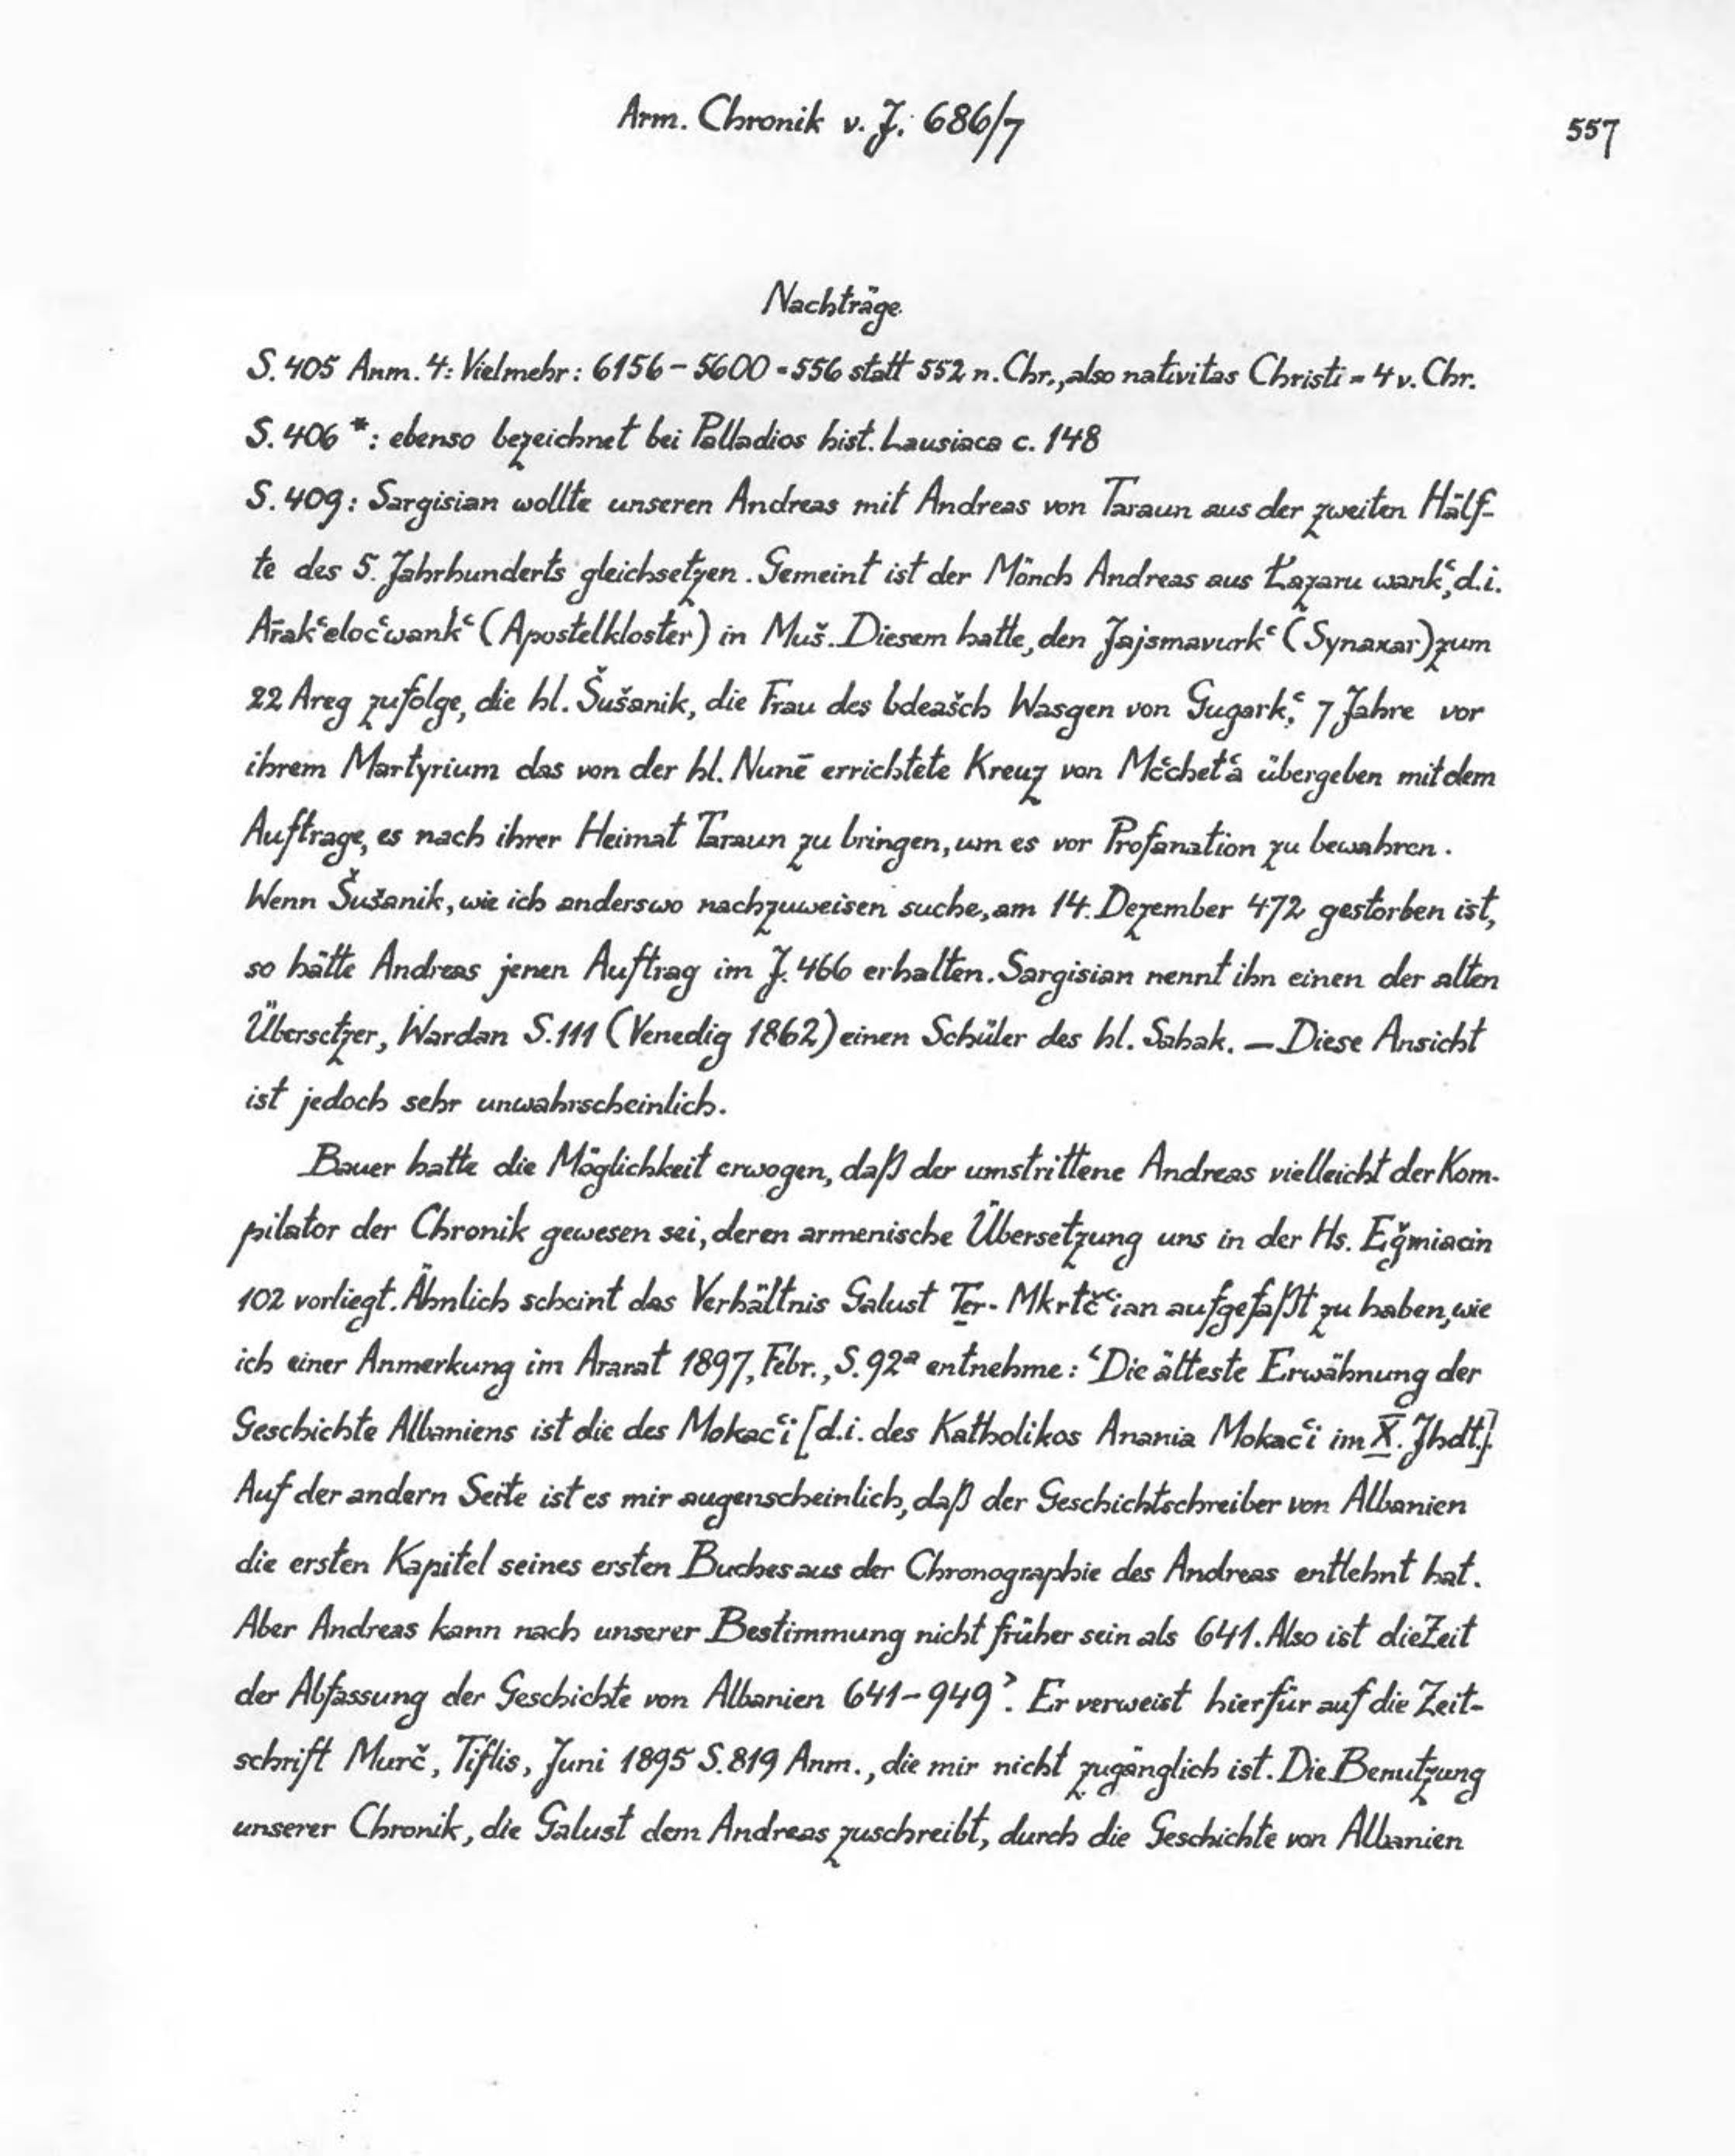 Arm. Chronik v. J. 686/7
557
Nachträge
S. 405 Anm. 4: Vielmehr: 6156 – 5600 = 556 statt 552 n. Chr., also nativitas Christi = 4 v. Chr.
S. 406 *: ebenso bezeichnet bei Palladios hist. Lausiaca c. 148
S. 409: Sargisian wollte unseren Andreas mit Andreas von Taraun aus der zweiten Hälf-
te des 5. Jahrhunderts gleichsetzen. Gemeint ist der Mönch Andreas aus Łazaru wankʿ, d.i.
Aṙakʿelocʿwankʿ (Apostelkloster) in Muš. Diesem hatte, den Jajsmavurkʿ (Synaxar) zum
22 Areg zufolge, die hl. Šušanik, die Frau des bdeašch Wasgen von Gugarkʿ, 7 Jahre vor
ihrem Martyrium das von der hl. Nunē errichtete Kreuz von Mcʿchetʿa übergeben mit dem
Auftrage, es nach ihrer Heimat Taraun zu bringen, um es vor Profanation zu bewahren.
Wenn Šušanik, wie ich anderswo nachzuweisen suche, am 14. Dezember 472 gestorben ist,
so hätte Andreas jenen Auftrag im J. 466 erhalten. Sargisian nennt ihn einen der alten
Übersetzer, Wardan S. 111 (Venedig 1862) einen Schüler des hl. Sahak. — Diese Ansicht
ist jedoch sehr unwahrscheinlich.
Bauer hatte die Möglichkeit erwogen, daß der umstrittene Andreas vielleicht der Kom-
pilator der Chronik gewesen sei, deren armenische Übersetzung uns in der Hs. Eǧmiacin
102 vorliegt. Ähnlich scheint das Verhältnis Galust Ter-Mkrtčʿian aufgefaßt zu haben, wie
ich einer Anmerkung im Ararat 1897, Febr., S. 92ᵃ entnehme: ‘Die älteste Erwähnung der
Geschichte Albaniens ist die des Mokacʿi [d.i. des Katholikos Anania Mokacʿi im X. Jhdt.].
Auf der andern Seite ist es mir augenscheinlich, daß der Geschichtschreiber von Albanien
die ersten Kapitel seines ersten Buches aus der Chronographie des Andreas entlehnt hat.
Aber Andreas kann nach unserer Bestimmung nicht früher sein als 641. Also ist die Zeit
der Abfassung der Geschichte von Albanien 641–949’. Er verweist hierfür auf die Zeit-
schrift Murč, Tiflis, Juni 1895 S. 819 Anm., die mir nicht zugänglich ist. Die Benutzung
unserer Chronik, die Galust dem Andreas zuschreibt, durch die Geschichte von Albanien